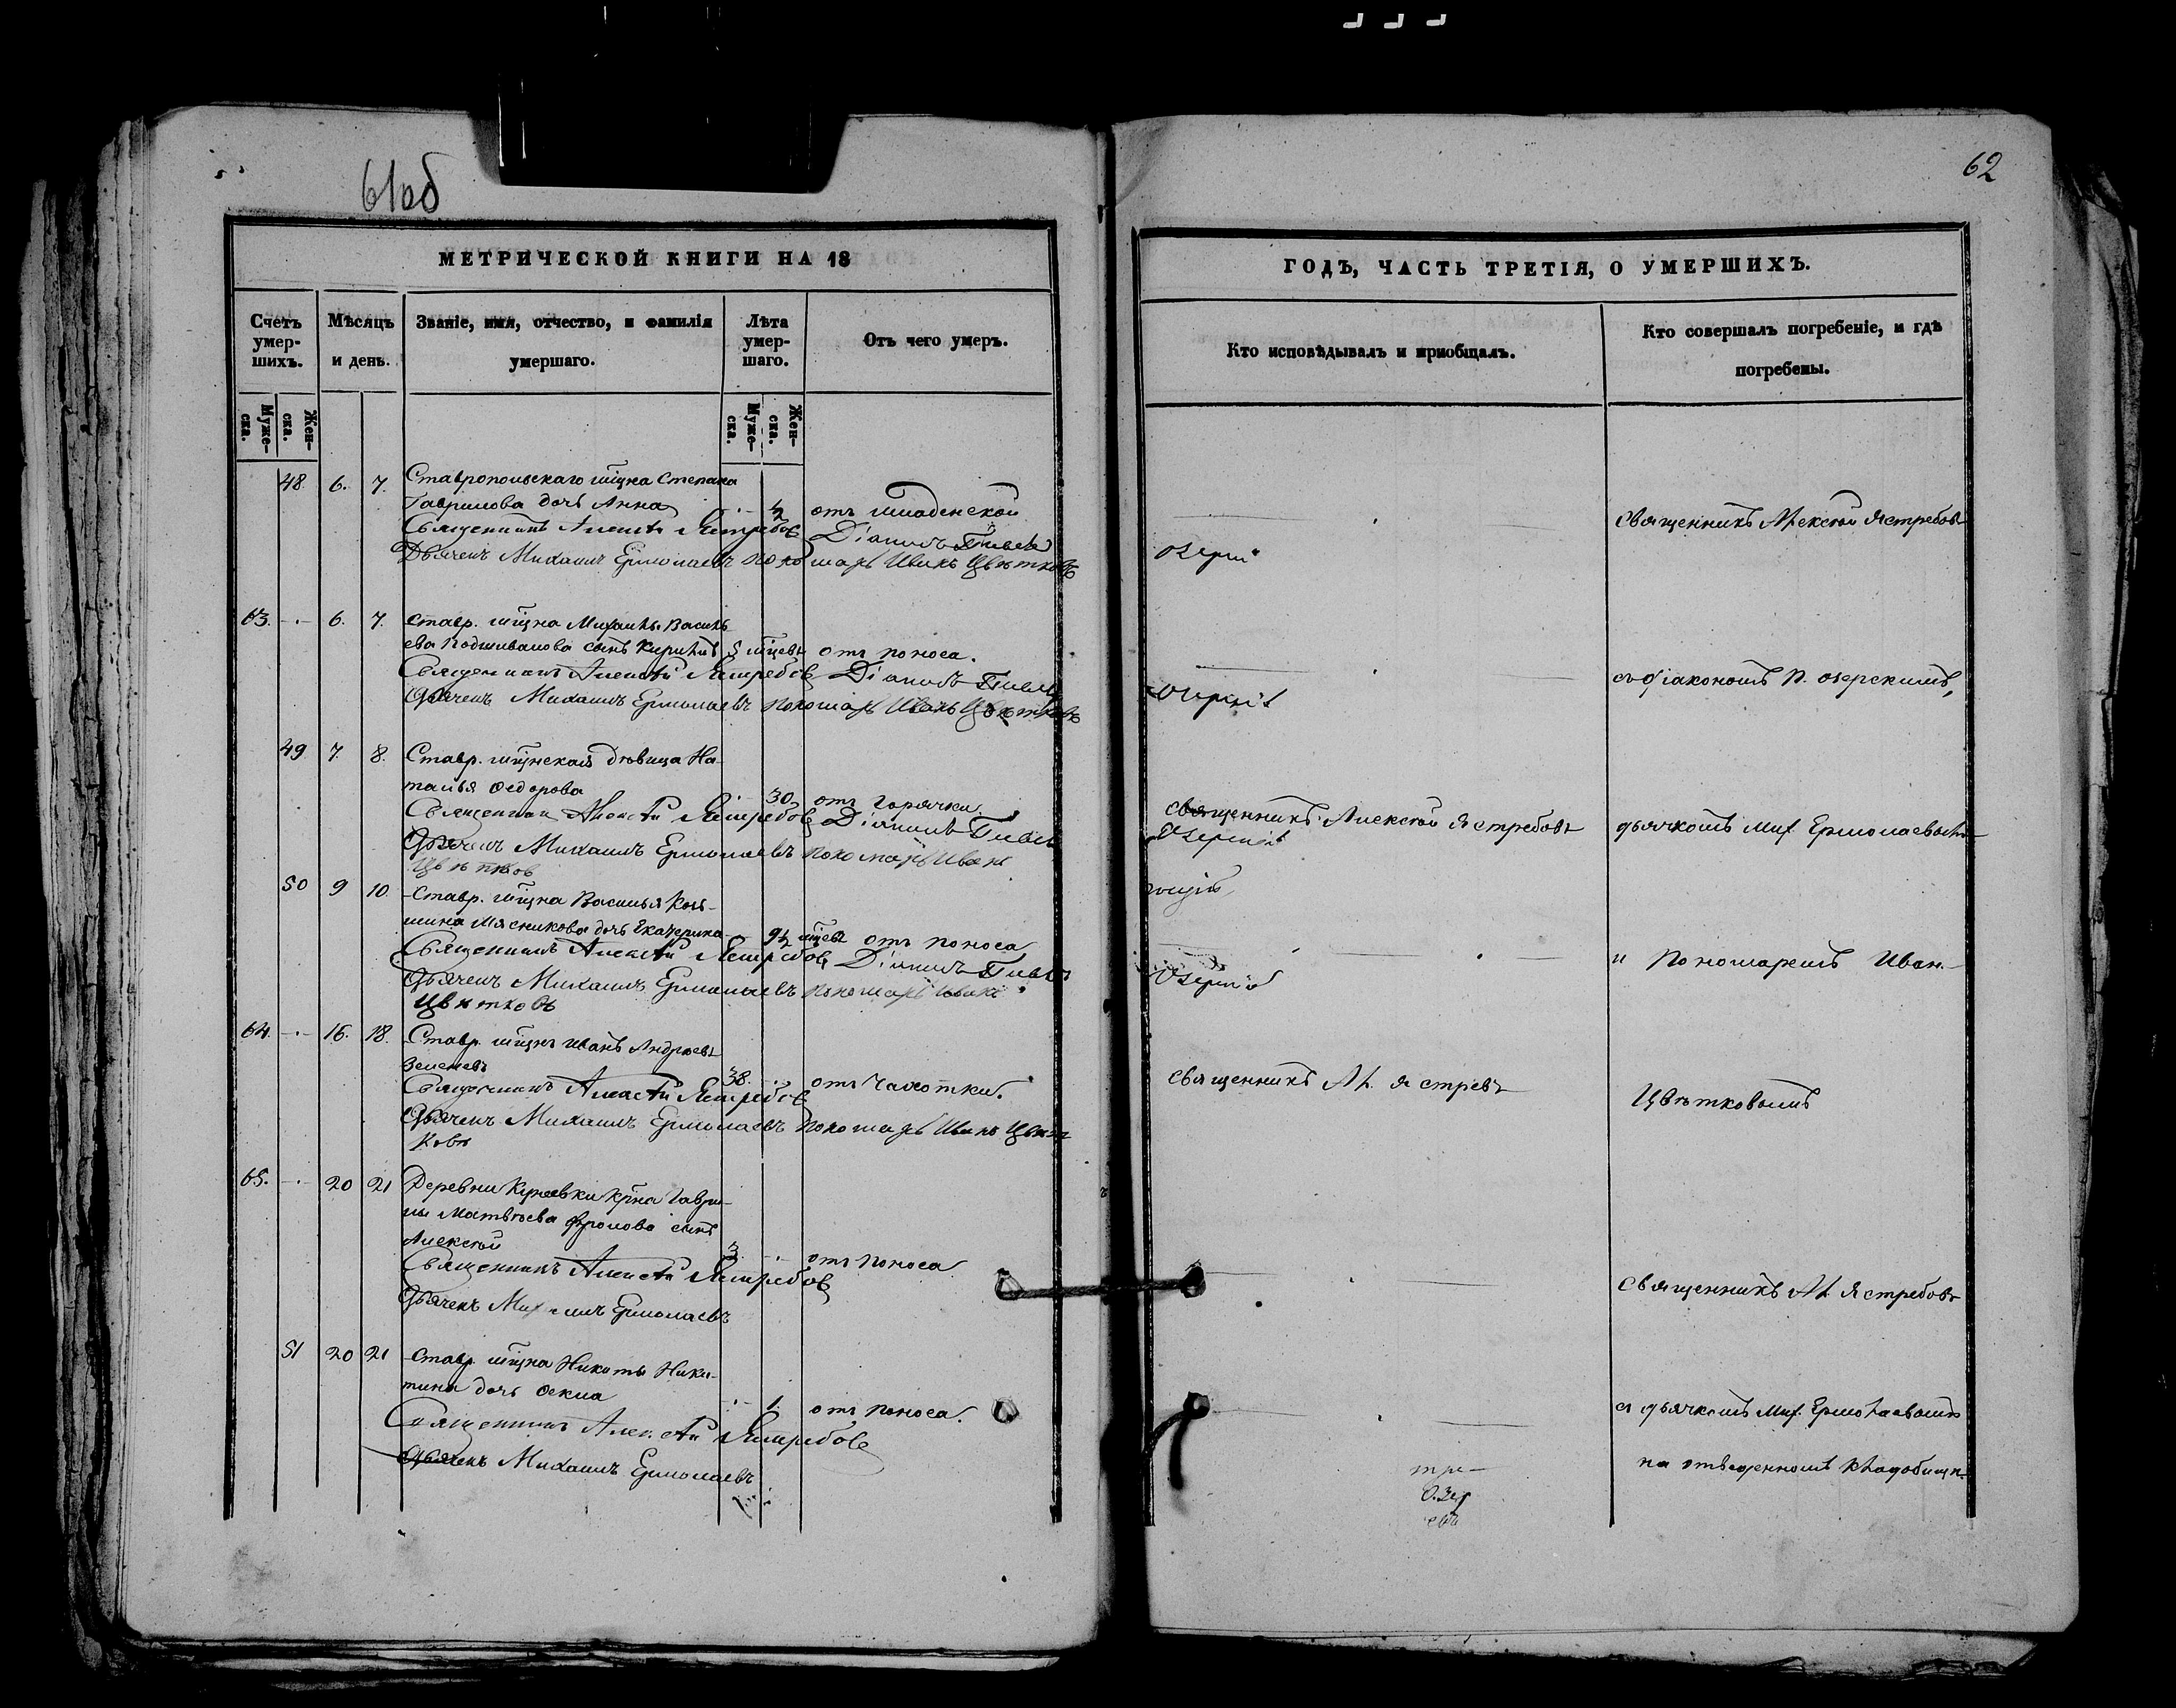 61об
МЕТРИЧЕСКОЙ КНИГИ НА 18
Счетъ умер-шихъ.
Мѣсяцъ и день.
Званіе, имя, отчество, и фамилія умершаго.
Лѣта умер-шаго.
Отъ чего умеръ.
Муже-ска.
Жен-ска.
Муже-ска.
Жен-ска.
48. 6. 7. Ставропольскаго мѣщна Степана
Гаврилова дочь Анна ½ отъ младенской
Священникъ Алексѣй Ястребовъ Діаконъ
Дьячекъ Михаилъ Ермолаевъ Пономарь Иванъ Цвѣтковъ
63. 6. 7. Ставр. мѣщна Михаилы Василь
ева Подшивалова сынъ Кирилъ 5 мѣцевъ отъ поноса.
Священникъ Алексѣй Ястребовъ Діаконъ
Дьячекъ Михаилъ Ермолаевъ Пономарь Иванъ Цвѣтковъ
49 7. 8. Ставр. мѣщнская дѣвица На-
талья Ѳедорова 30 отъ горячки
Священникъ Алексѣй Ястребовъ Діаконъ
Дьячекъ Михаилъ Ермолаевъ Пономарь Иванъ
Цвѣтковъ
50 9 10. Ставр. мѣщна Василья Козь-
мина Мясникова дочь Екатерина 9½ мѣцевъ отъ поноса
Священникъ Алексѣй Ястребовъ Діаконъ
Дьячекъ Михаилъ Ермолаевъ Пономарь Иванъ
Цвѣтковъ
64. 16. 18. Ставр. мѣщнъ Иванъ Андреевъ
38. отъ чахотки.
Священникъ Алексѣй Ястребовъ
Дьячекъ Михаилъ Ермолаевъ Пономарь Иванъ Цвѣт
ковъ
65. 20 21 Деревни Кунеевки крна Гаври-
лы Матвѣева Фролова сынъ
Алексѣй 3. отъ поноса
Священникъ Алексѣй Ястребовъ
Дьячекъ Михаилъ Ермолаевъ
51 20 21 Ставр. мѣщна Никиты Ники-
тина дочь 1. отъ поноса.
Священникъ Алексѣй Ястребовъ
Дьячекъ Михаилъ Ермолаевъ
62
ГОДЪ, ЧАСТЬ ТРЕТІЯ, О УМЕРШИХЪ.
Кто исповѣдывалъ и приобщалъ.
Кто совершалъ погребеніе, и гдѣ погребены.
священникъ Алексѣй Ястребовъ
съ діакономъ П. Озерскимъ,
священникъ Алексѣй Ястребовъ дьячкомъ Мих. Ермолаевымъ
и Пономаремъ Иван.
священникъ Ал. Ястребъ
Цвѣтковымъ
священникъ Ал. Ястребовъ
съ дьячкомъ Мих. Ермолаевымъ
на отведенномъ кладбищѣ.